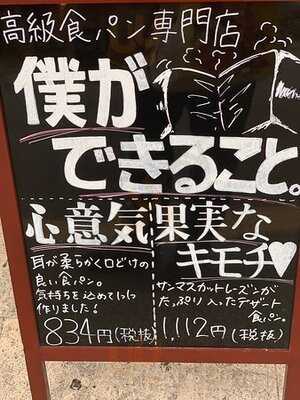 高級食パン専門店
僕が
できること。
心意気
耳が柔らかく口どけの
良い食パン。
気持ちを込めて1つ1つ
作りました!
834円(税抜)
果実な
キモチ♥
サンマスカットレーズンが
たっぷり入ったデザート
食パン。
1,112円(税抜)